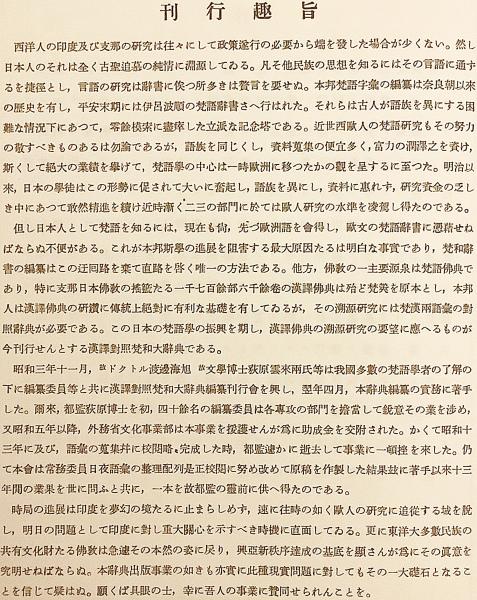 刊行趣旨
西洋人の印度及び支那の研究は往々にして政策遂行の必要から端を發した場合が少くない。然し
日本人のそれは全く古聖追慕の純情に淵源してゐる。凡そ他民族の思想を知るにはその言語に通ず
るを捷徑とし、言語の研究は辭書に俟つ所多きは贅言を要せぬ。本邦梵語字彙の編纂は奈良朝以來
の歷史を有し、平安末期には伊呂波順の梵語辭書さへ行はれた。それらは古人が語族を異にする困
難な情況下にあつて、零餘模索に盡瘁した立派な記念塔である。近世西歐人の梵語研究もその努力
の敬すべきものあるは勿論であるが、語族を同じくし、資料蒐集の便宜多く、富力の潤澤之を資け、
斯くして絕大の業績を擧げて、梵語學の中心は一時歐洲に移つたかの觀を呈するに至つた。明治以
來、日本の學徒はこの形勢に促されて大いに奮起し、語族を異にし、資料に惠れず、研究資金の乏し
き中にあつて敢然精進を續け近時漸く二三の部門に於ては歐人研究の水準を凌駕し得たのである。
但し日本人として梵語を知るには、現在も尙、先づ歐洲語を會得し、歐文の梵語辭書に憑藉せね
ばならぬ不便がある。これが本邦斯學の進展を阻害する最大原因たるは明白な事實であり、梵和辭
書の編纂はこの迂回路を棄て直路を啓く唯一の方法である。他方、佛敎の一主要源泉は梵語佛典で
あり、特に支那日本佛敎の搖籃たる一千七百餘部六千餘卷の漢譯佛典は殆ど梵筴を原本とし、本邦
人は漢譯佛典の研鑽に傳統上絕對に有利な基礎を有してゐるが、その溯源研究には梵漢兩語彙の對
照辭典が必要である。この日本の梵語學の振興を期し、漢譯佛典の溯源硏究の要望に應へるものが
今刊行せんとする漢譯對照梵和大辭典である。
昭和三年十一月、故ドクトル渡邊海旭 故文學博士荻原雲來兩氏等は我國多數の梵語學者の了解の
下に編纂委員等と共に漢譯對照梵和大辭典編纂刊行會を興し、翌年四月、本辭典編纂の實務に著手
した。爾來、都監荻原博士を初、四十餘名の編纂委員は各專攻の部門を擔當して銳意その業を涉め、
又昭和五年以降、外務省文化事業部は本事業を援護せんが爲に助成金を交附された。かくて昭和十
三年に及び、語彙の蒐集幷に校閱略々完成した時、都監遽かに逝去して事業に一頓挫を來した。仍
て本會は常務委員日夜語彙の整理配列是正校閱に努め改めて原稿を作製した結果玆に著手以來十三
年間の業果を世に問ふと共に、一本を故都監の靈前に供へ得たのである。
時局の進展は印度を夢幻の境たるに止まらしめず、速に往時の如く歐人の研究に追從する域を脫
し、明日の問題として印度に對し重大關心を示すべき時機に直面してゐる。更に東洋大多數民族の
共有文化財たる佛敎は急遽その本然の姿に戾り、興亞新秩序達成の基底を顯さんが爲にその眞意を
究明せねばならぬ。本辭典出版事業の如きも亦實に此種現實問題に對してもその一大礎石となるこ
とを信じて疑はぬ。願くば具眼の士、幸に吾人の事業に贊同せられんことを。